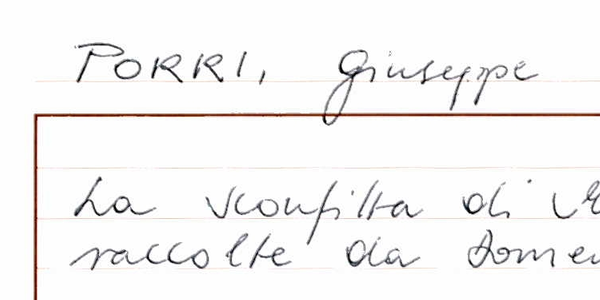 PORRI, Giuseppe
La sconfitta di
raccolte da